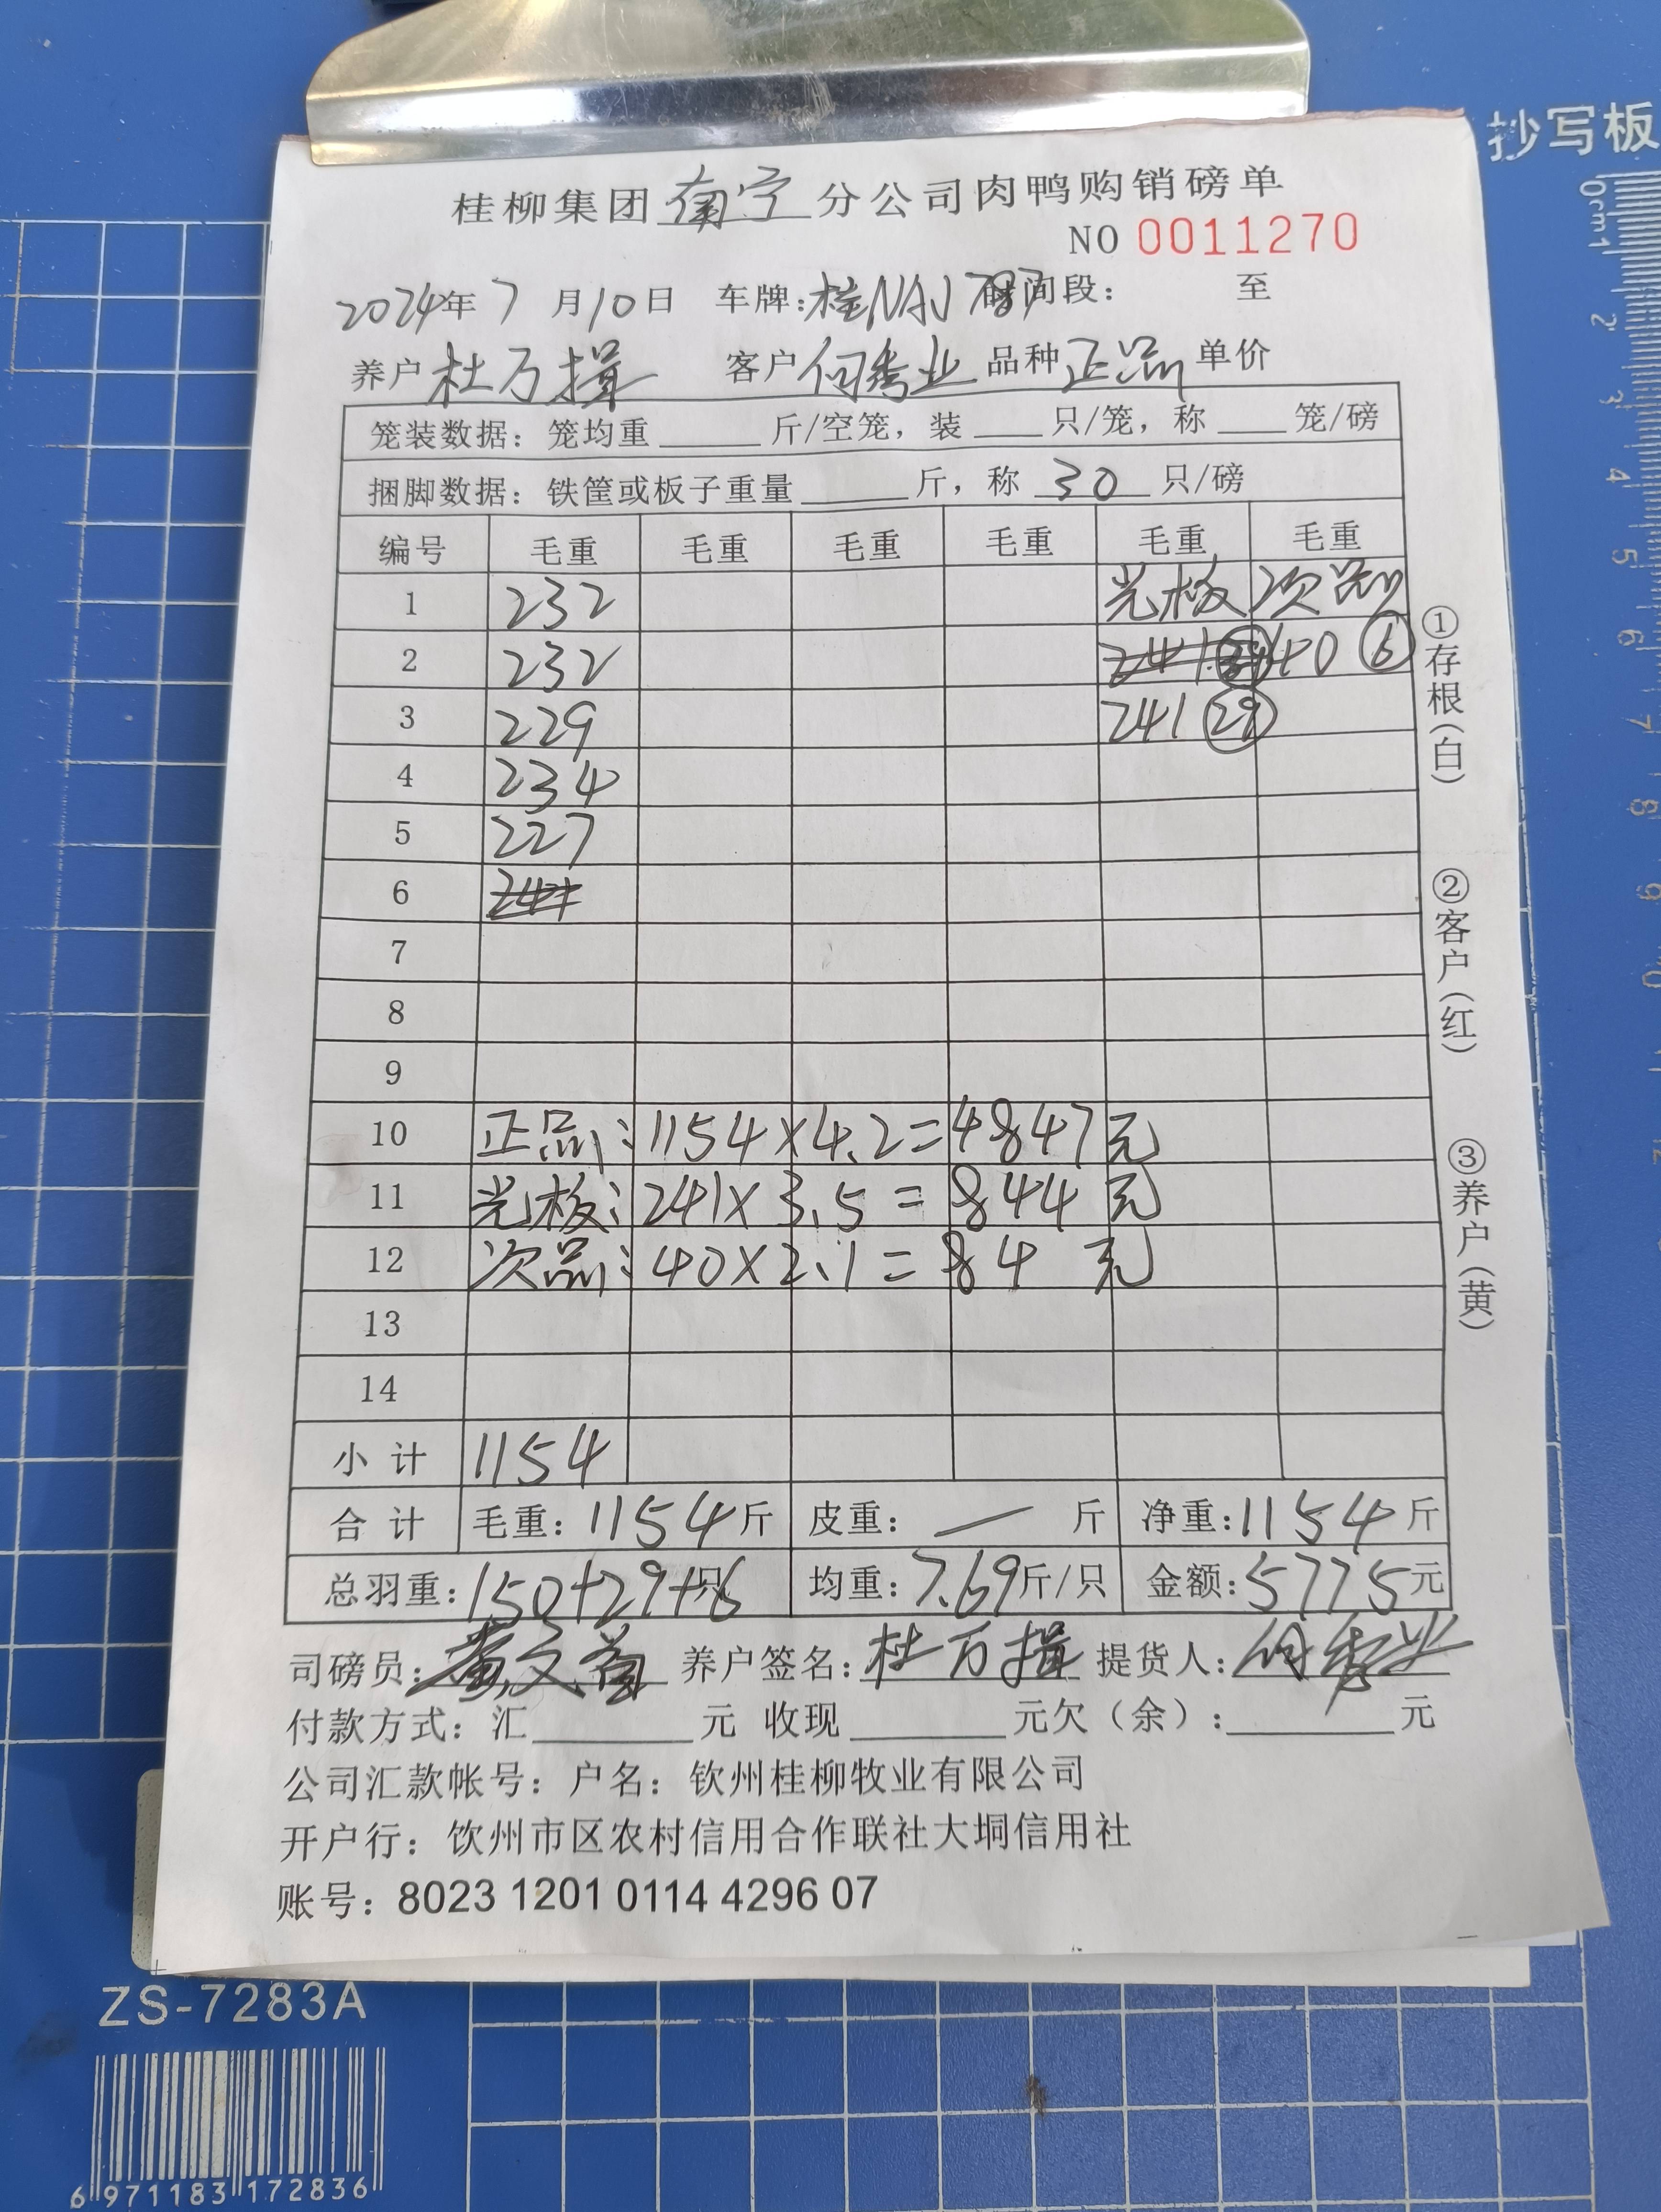 抄写板
0cm1 2 3 4 5 6 7 8 9 10 11 12
桂柳集团南宁分公司肉鸭购销磅单
NO 0011270
2024年7月10日 车牌:桂NAJ 时间段: 至
养户 杜万揖 客户 何秀业 品种 正品 单价
笼装数据: 笼均重 斤/空笼, 装 只/笼, 称 笼/磅
捆脚数据: 铁筐或板子重量 斤, 称 30 只/磅
编号 毛重 毛重 毛重 毛重 毛重 毛重
1 232 光板 次品
2 232 241 40 6
3 229 241 29
4 234
5 227
6
7
8
9
10 正品: 1154×4.2=4847元
11 光板: 241×3.5=844元
12 次品: 40×2.1=84元
13
14
小计 1154
合计 毛重: 1154斤 皮重: — 斤 净重: 1154斤
总羽重: 150+29+6只 均重: 7.69斤/只 金额: 5775元
司磅员: 黄文 养户签名: 杜万揖 提货人: 何秀业
付款方式: 汇 元 收现 元欠(余): 元
公司汇款帐号: 户名: 钦州桂柳牧业有限公司
开户行: 饮州市区农村信用合作联社大垌信用社
账号: 8023 1201 0114 4296 07
①存根(白)
②客户(红)
③养户(黄)
ZS-7283A
6 971183 172836